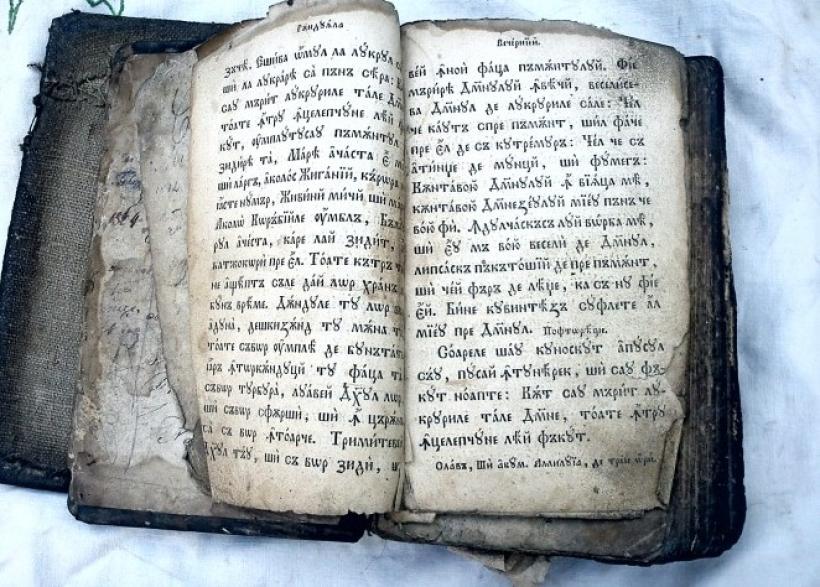 Рѫндꙋѧла
зъте. Єшива ѡмꙋл ла лꙋкрꙋл
ши ла лꙋкрарѣ са пънъ сѣра:
саꙋ мърит лꙋкрꙋриле тале
тоате ꙟтрꙋ ꙟцелепчꙋне лѣй
кꙋт, ꙋмплꙋтꙋсаꙋ пъмѫнтꙋл
зидирѣ та, Марѣ ачаста є
ши ларгъ, аколос жигѧнїй, кърѡра
пєсте нꙋмър, Живинй мичй, ши
Аколѡ Кѡръбїйле ꙋмблъ,
рꙋл ачеста, каре лай зидит,
батжокѡри пре єл. Тоате кътръ
не ащептъ съле дай лѡр хранъ
бꙋнъ врѣме. Дѫндꙋле тꙋ лѡр
адꙋна, дешкизѫнд тꙋ мѫна
тоате съвѡр ꙋмплѣ де бꙋнътат
ꙗръ ꙟтѡркѫндꙋци тꙋ фаца
съвѡр тꙋрбꙋра, лꙋавей Дꙋ҃л лѡр
ши съвѡр сфѫрши, ши ꙟ църѫна
са съ вѡр ꙟтоарче. Тримитевей
Дꙋ҃л тъꙋ, ши съ вѡр зиди,
Вечерний
вей ꙟной фаца пъмѫнтꙋлꙋй. Фїе
мърирѣ Дм҃нꙋлꙋй ꙟвѣчй, веселисе-
ва Дм҃нꙋл де лꙋкрꙋриле сале: Чел
че каꙋтъ спре пъмѫнт, шил фаче
пре єл де съ кꙋтремꙋръ: Чел че съ
атинце де мꙋнци, ши фꙋмегъ:
Кѫнтавою Дм҃нꙋлꙋй ꙟ вїѧца мѣ,
кѫнтавою Дм҃незеꙋлꙋй мїеꙋ пънъ че
воюфи. Ꙟдꙋлчаскъсъ лꙋй ворба мѣ,
ши єꙋ мъ вою весели де Дм҃нꙋл,
липсаскъ пъкътошїй де пре пъмѫнт,
ши чей фъръ де лѣце, ка съ нꙋ фїе
єй. Бине кꙋвинтѣзъ сꙋфлете ал
мїеꙋ пре Дм҃нꙋл. Пофторѣще.
Соареле шаꙋ кꙋноскꙋт апꙋсꙋл
съꙋ, пꙋсай ꙟтꙋнѣрек, ши саꙋ фъ-
кꙋт ноапте: Кѫт саꙋ мърит лꙋ-
крꙋриле тале Дм҃не, тоате ꙟтрꙋ
ꙟцелепчꙋне лѣй фъкꙋт.
Славъ, Ши акꙋм. Аллилꙋїа, де трей ѡри.